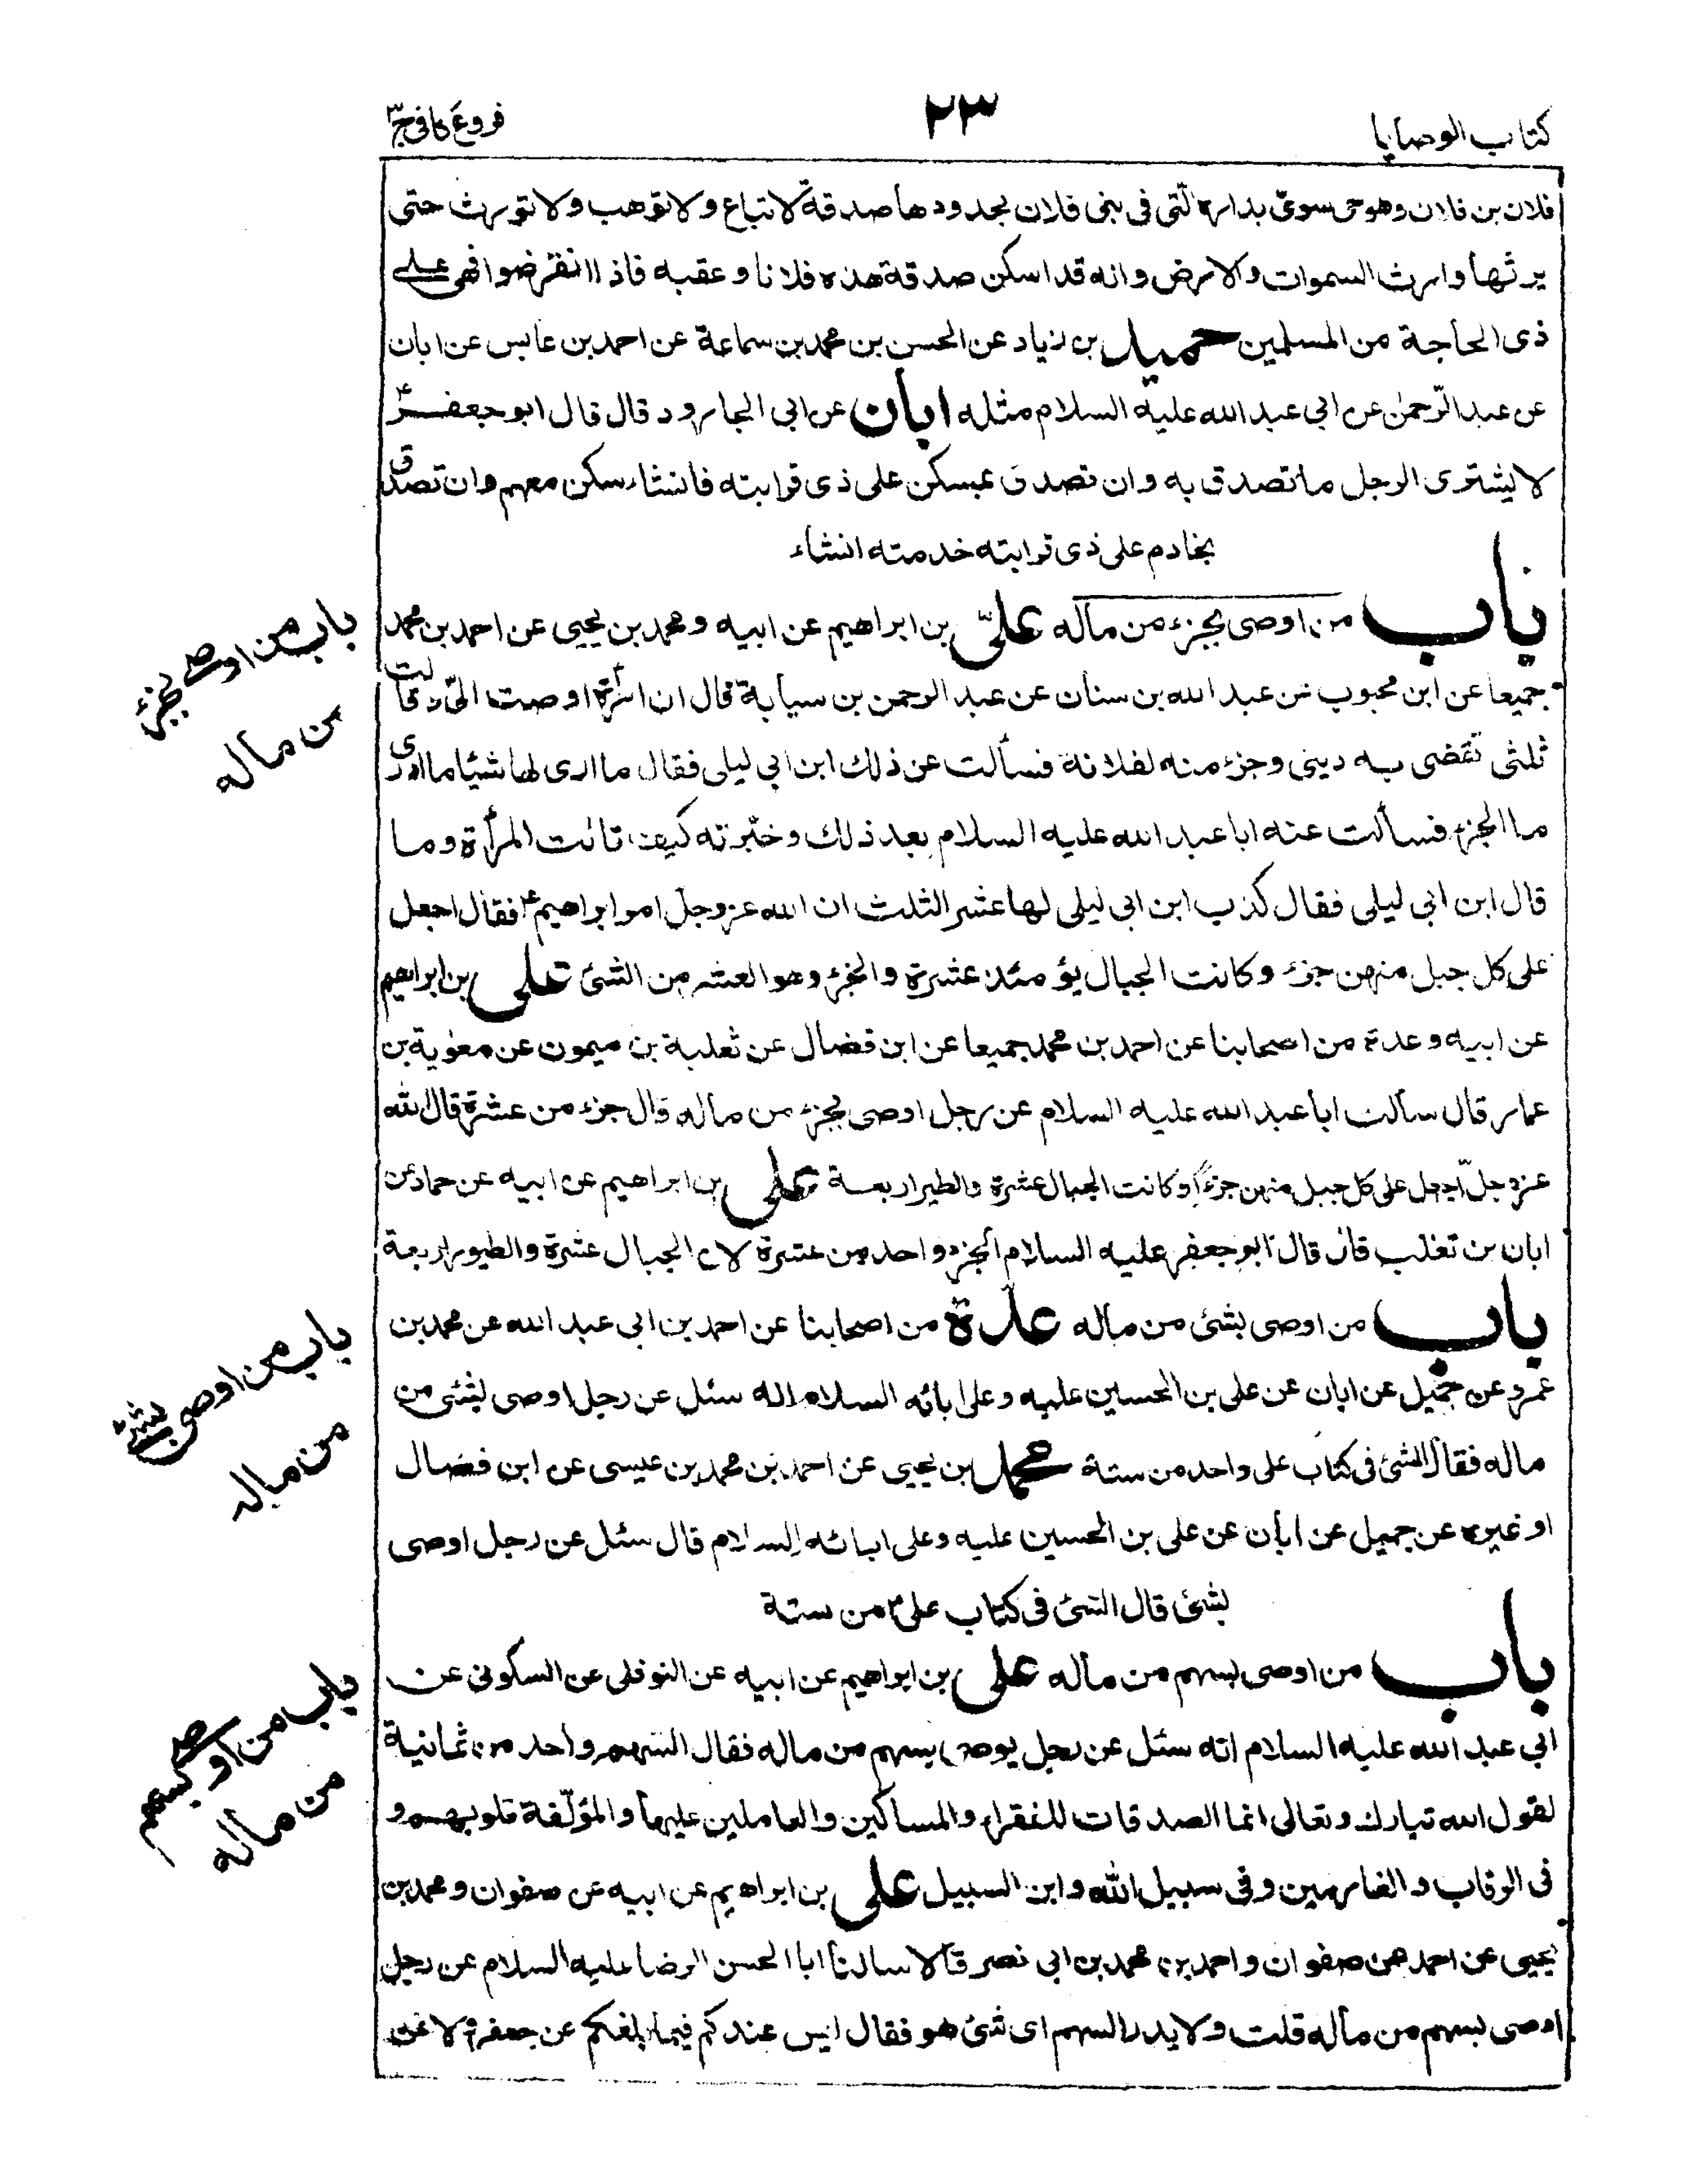 كتاب الوصايا
٢٣
فروع كافى ج٣
فلان بن فلان وهو حى سوىّ بداره الّتى فى بنى فلان بحدودها صدقة لا تباع ولا توهب ولا تورث حتى
يرثها وارث السموات والارض وانه قد اسكن صدقة هذه فلانا وعقبه فاذا انقرضوا فهى على
ذى الحاجة من المسلمين حميد بن زياد عن الحسن بن محمد بن سماعة عن احمد بن عابس عن ابان
عن عبد الرّحمٰن عن ابى عبد الله عليه السلام مثله ابان عن ابى الجارود قال قال ابو جعفر ع
لا يشترى الرجل ما تصدق به وان تصدق بمسكن على ذى قرابته فانشاء سكن معهم وان تصدق
بخادم على ذى قرابته خدمته انشاء
باب من اوصى بجزء من ماله علىّ بن ابراهيم عن ابيه ومحمد بن يحيى عن احمد بن محمد
جميعا عن ابن محبوب عن عبد الله بن سنان عن عبد الرحمن بن سيابة قال ان امرأة اوصت الىّ وقالت
ثلثى تقضى به دينى وجزء منه لفلانة فسألت عن ذلك ابن ابى ليلى فقال ما ارى لها شيئا ما ادرى
ما الجزء فسألت عنه ابا عبد الله عليه السلام بعد ذلك وخبّرته كيف قالت المرأة وما
قال ابن ابى ليلى فقال كذب ابن ابى ليلى لها عشر الثلث ان الله عزوجل امر ابراهيم ع فقال اجعل
على كل جبل منهن جزء وكانت الجبال يؤمئذ عشرة والجزء وهو العشر من الشئ على بن ابراهيم
عن ابيه وعدة من اصحابنا عن احمد بن محمد جميعا عن ابن فضال عن ثعلبة بن ميمون عن معٰوية بن
عمار قال سألت ابا عبد الله عليه السلام عن رجل اوصى بجزء من ماله قال جزء من عشرة قال الله
عزوجلّ اجعل على كل جبل منهن جزءًا وكانت الجبال عشرة والطير اربعة على بن ابراهيم عن ابيه عن حماد عن
ابان بن تغلب قال قال ابو جعفر عليه السلام الجزء واحد من عشرة لان الجبال عشرة والطيور اربعة
باب من اوصى بشئ من ماله عدّة من اصحابنا عن احمد بن ابى عبد الله عن محمد بن
عمرو عن جميل عن ابان عن على بن الحسين عليه وعلى ابائه السلام انه سئل عن رجل اوصى بشئ من
ماله فقال الشئ فى كتاب على واحد من ستة محمد بن يحيى عن احمد بن محمد بن عيسى عن ابن فضال
او غيره عن جميل عن ابان عن على بن الحسين عليه وعلى ابائه السلام قال سئل عن رجل اوصى
بشئ قال الشئ فى كتاب على ع من ستة
باب من اوصى بسهم من ماله على بن ابراهيم عن ابيه عن النوفلى عن السكونى عن
ابى عبد الله عليه السلام انه سئل عن رجل يوصى بسهم من ماله فقال السهم واحد من ثمانية
لقول الله تبارك وتعالى انما الصدقات للفقراء والمساكين والعاملين عليها والمؤلّفة قلوبهم و
فى الرقاب والغارمين وفى سبيل الله وابن السبيل على بن ابراهيم عن ابيه عن صفوان ومحمد بن
يحيى عن احمد عن صفوان واحمد بن محمد بن ابى نصر قالا سالنا ابا الحسن الرضا عليه السلام عن رجل
اوصى بسهم من ماله قلت ولا يدرا السهم اى شئ هو فقال ليس عندكم فيما بلغكم عن جعفر ولا عن
باب من اوصى بجزء
من ماله
باب من اوصى بشئ
من ماله
باب من اوصى بسهم
من ماله